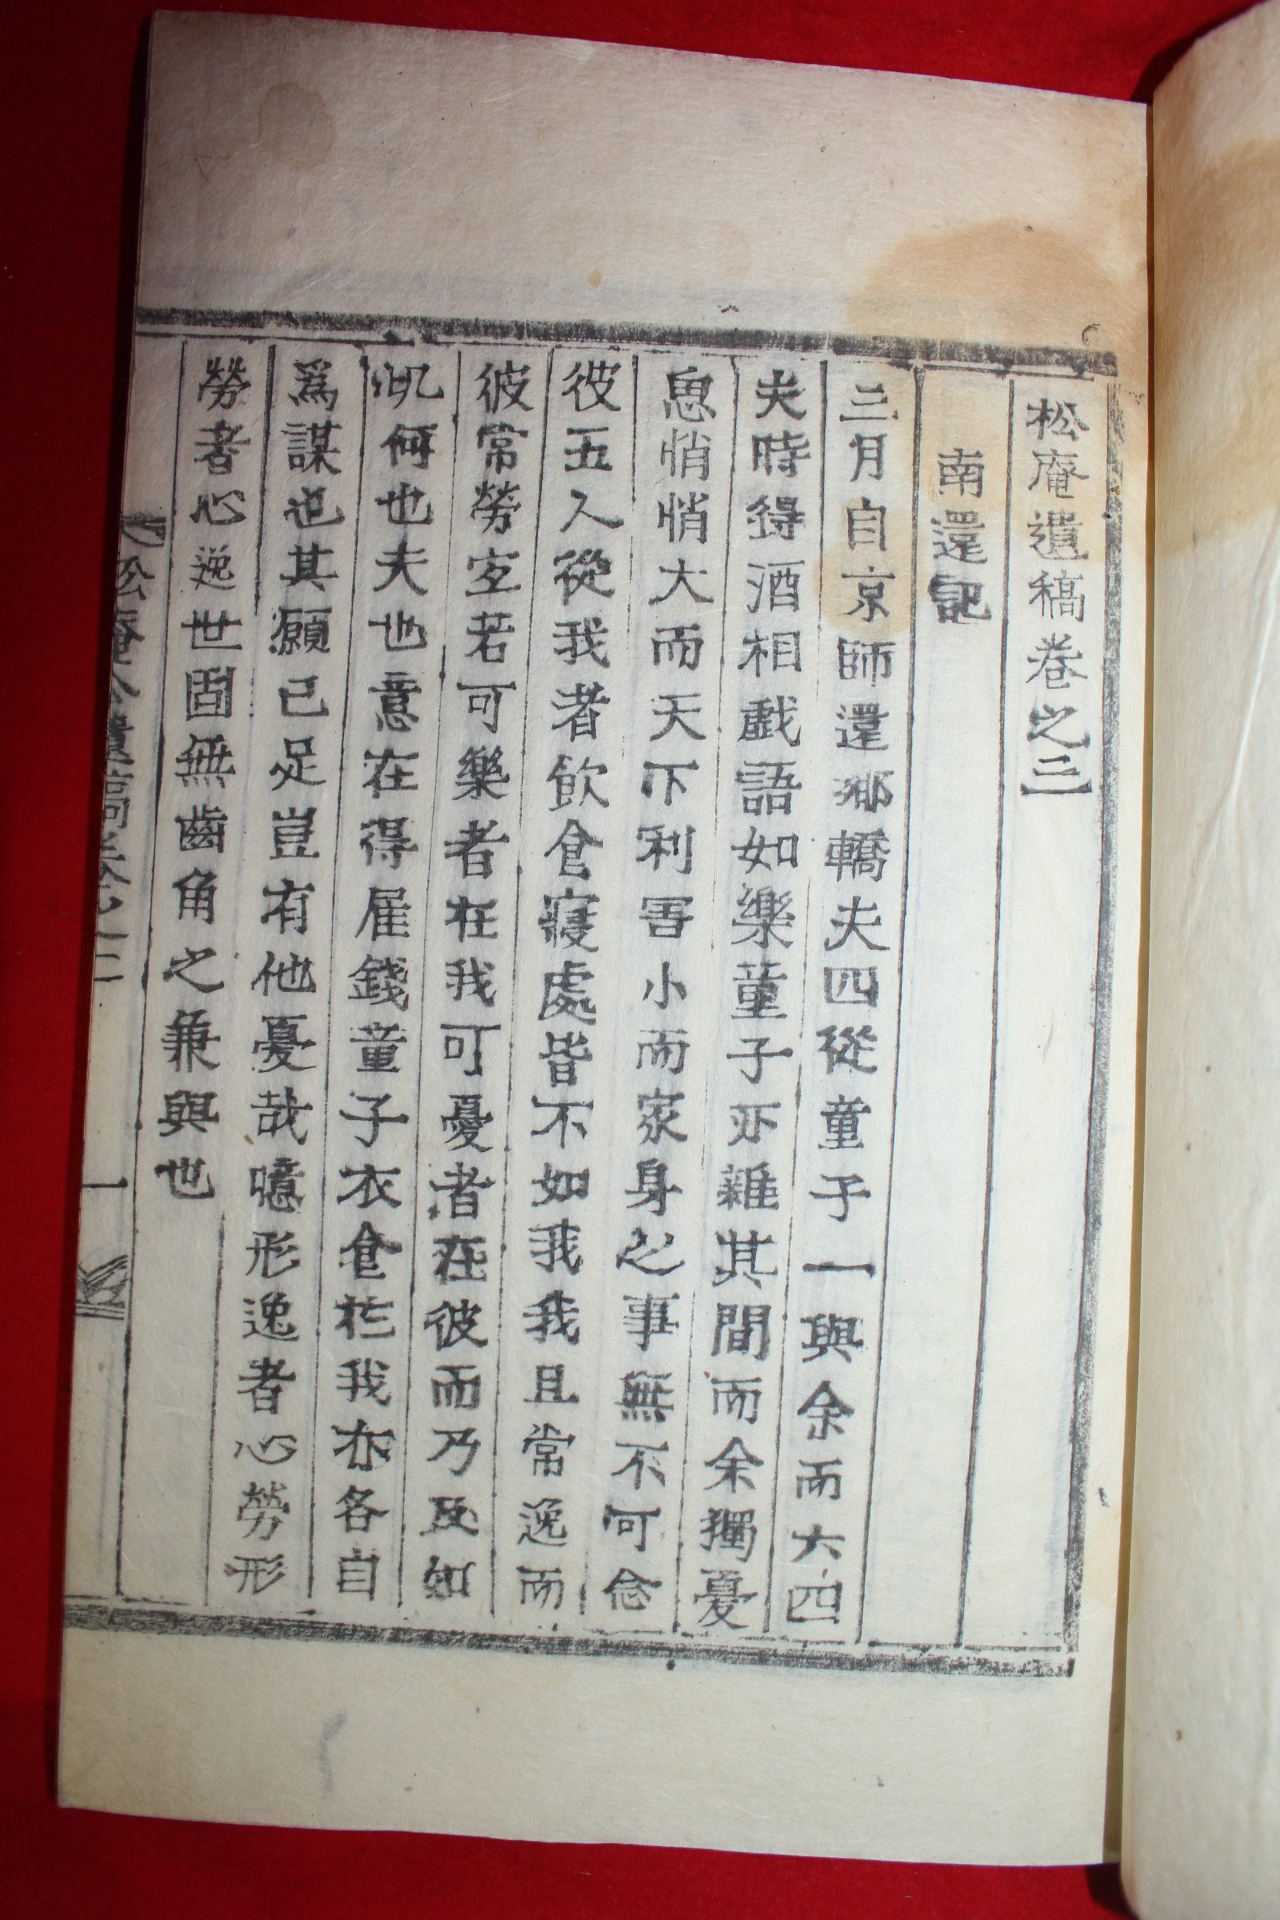 松庵遺稿卷之三
南還記
三月自京師還鄉轎夫四從童子一與余而六四
夫時得酒相戱語如樂童子亦雜其間而余獨憂
思悄悄大而天下利害小而家身之事無不可念
彼五人從我者飮食寢處皆不如我我且常逸而
彼常勞宐若可樂者在我可憂者在彼而乃反如
此何也夫也意在得雇錢童子衣食於我亦各自
爲謀也其願已足豈有他憂哉噫形逸者心勞形
勞者心逸世固無齒角之兼與也
松庵公遺稿卷之三
一